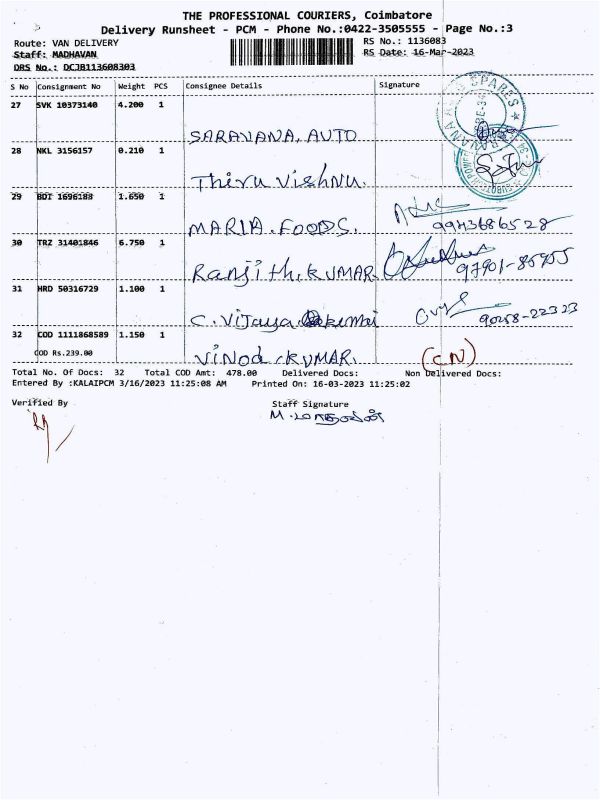 THE PROFESSIONAL COURIERS, Coimbatore
Delivery Runsheet - PCM - Phone No.:0422-3505555 - Page No.:3
Route: VAN DELIVERY RS No.: 1136083
Staff: MADHAVAN RS Date: 16-Mar-2023
DRS No.: DCJB113608303
S No Consignment No Weight PCS Consignee Details Signature
27 SVK 10373140 4.200 1
SARAVANA. AUTO
28 NKL 3156157 0.210 1
Thiru Vishnu.
29 BDI 1696183 1.650 1
MARIA. FOODS. 9943686528
30 TRZ 31401846 6.750 1
Ranjith.KUMAR 97901-85955
31 HRD 50316729 1.100 1
C. Vijaya 90258-22323
32 COD 1111868589 1.150 1
COD Rs.239.00
Vinod .KUMAR. (CN)
Total No. Of Docs: 32 Total COD Amt: 478.00 Delivered Docs: Non Delivered Docs:
Entered By :KALAIPCM 3/16/2023 11:25:08 AM Printed On: 16-03-2023 11:25:02
Verified By Staff Signature
M. மாதவன்